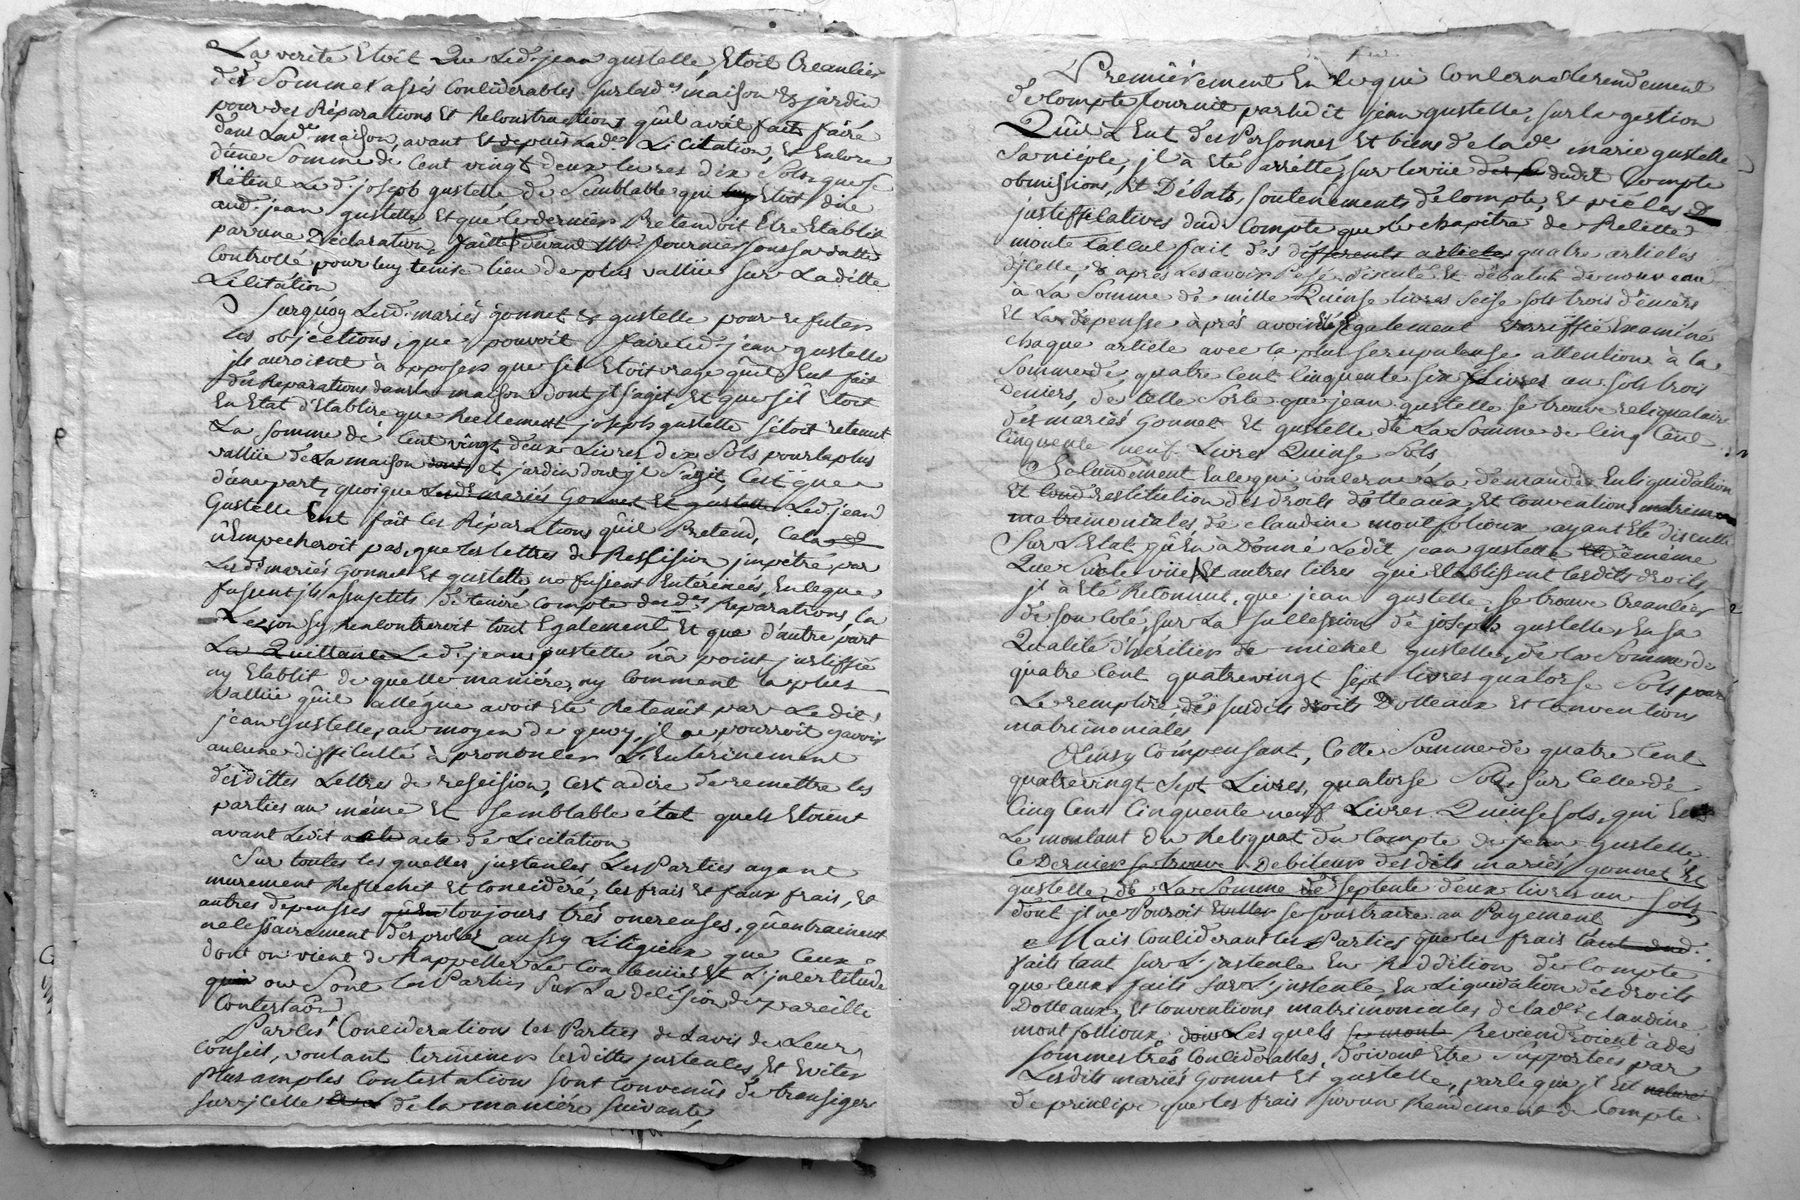 La verité Etoit Que Led. jean gustelle, Etoit Creancier
des Sommes assés Considerables sur lesd.es maison & jardin
pour des Réparations Et Reconstructions qu'il avoit fait faire
dans Lad.e maison, avant Et depuis Lad.e Licitation, En Encore
d'une Somme de Cent vingt deux livres dix Sols que se
Retint Led. joseph gustelle de Semblable qui Etoit due
aud. jean gustelle Et que le dernier Pretendoit Etre Etablit
par une Déclaration, faitte devant M.e fournier sous sa datte
Controllé pour luy tenir lieu de plus vallüe sur Laditte
Licitation
Surquoy Lesd. mariés gonnet & gustelle pour refuter
les objections, que pouvoit faire led. jean gustelle
ils auroient à opposer que s'il Etoit vray qu'il Eut fait
des Reparations dans la maison dont il s'agit, Et que s'il Etoit
En Etat d'Etablire que Reellement joseph gustelle s'etoit retenut
La Somme de Cent vingt deux Livres dix Sols pour la plus
vallüe de La maison dont et jardin dont il S'agit, C'est que
d'une part, quoique Lesd.s mariés Gonnet Et gustelle Led. jean
Gustelle Eut fait les Réparations qu'il Pretend, Cela
n'Empecheroit pas, que les lettres de Rescision impétré par
Lesd.s mariés Gonnet Et gustelle ne fussent Enterinées, En ce que
fussent ils assujetits de tenir Compte desd.es Reparations, la
Lezion s'y Rencontreroit tout Egalement Et que d'autre part
La Quittance Led. jean gustelle n'a point justiffié
ny Etablit de quelle maniére, ny Comment la plus
vallüe qu'il allégue avoit Eté Retenüt par Ledit
jean Gustelle, au moyen de quoy, il ne pourroit y avoir
aucune difficulté à prononcer L'Enterinement
desdittes Lettres de rescision, C'est adire de remettre les
parties au méme Et semblable état quels Etoient
avant Ledit acte acte de Licitation
Sur toutes les quelles jnstances Les Parties ayant
murement Reflechit Et Considéré, les frais Et faux frais, Et
autres depenses qu'En toujours trés onereuses, qu'entrainent
necessairement des procés aussy Litigieux que Ceux
dont on vient de Rappeller Le Contenu, Et L'jncertitude
qui ou Sont les Parties Sur La decision de pareille
Contestaôn
Par Ces Considerations les Parties de L'avis de Leur
Conseil, voulant terminer lesdittes jnstances, Et Eviter
plus amples Contestations sont Convenus de transiger
sur jcelle de la maniére Suivante,
Premiérement En Ce qui Concerne le rendement
de Compte fournit par ledit jean gustelle, sur la gestion
Qu'il a Eut des Personnes Et biens de lad.e marie gustelle
Sa niéple, il à Eté arrétté, sur le vüe dudit Compte
obmissions, Et Débats, soutenements de Compte, Et piéces
justifficatives dud. Compte que le chapitre de Recette
monte Calcul fait des différents articles quatre articles
d'jcelle, & aprés Les avoir Pesé, discuté Et débatut de nouveau
à La Somme de mille Quinse livres seise sols trois deniers
Et La dépense aprés avoir Eté Egalement verriffié Examiné
chaque article avec la plus scrupuleuse attention à la
Somme de quatre Cent Cinquente six Livres un sols trois
Deniers, de telle Sorte que jean gustelle se trouve reliquataire
des mariés Gonnet Et gustelle de La Somme de Cinq Cent
Cinquente neuf Livres Quinse Sols
Secundement En ce qui Concerne La demande En liquidation
Et Cond. restitution des droits dotteaux, Et Conventions matrimon
matrimoniales de claudine montfollioux ayant Eté discutté
Sur L'Etat qu'En à Donné Ledit jean gustelle de méme
Que sur le vüe Et autres titres qui Etablissent lesdits droits
il à Eté Reconnut, que jean gustelle, se trouve Creancier
de son Coté, sur La succession de joseph gustelle, En sa
Qualité d'héritier de michel gustelle, de la Somme de
quatre Cent quatrevingt sept livres quatorse Sols pour
Le remplire des susdits droits Dotteaux Et Conventions
matrimoniales
Ainsy Compensant, Cette Somme de quatre Cent
quatrevingt Sept Livres, quatorse Sols, sur Celle de
Cinq Cent Cinquente neuf Livres Quinse Sols, qui Est
Le montant du Reliquat du Compte de jean Gustelle.
Ce Dernier se trouve Debiteur desdits mariés gonnet Et
gustelle, de La Somme de Septente deux livres un Sols
dont il ne Pouroit se soustraire au Payement
Mais Considerant les Parties que les frais tant dud.
faits tant sur L'jnstance En Reddition de Compte
que Ceux faits sur L'jnstance En Liquidation des droits
Dotteaux, Et Conventions matrimoniales de lad.e claudine
montfollioux. dont Les quels se monte Reviendroient à des
sommes trés Considerables, doivent Etre Supportées par
Lesdits mariés gonnet Et gustelle, parce que il Est naturel
de principe que les frais sur un Rendement de Compte